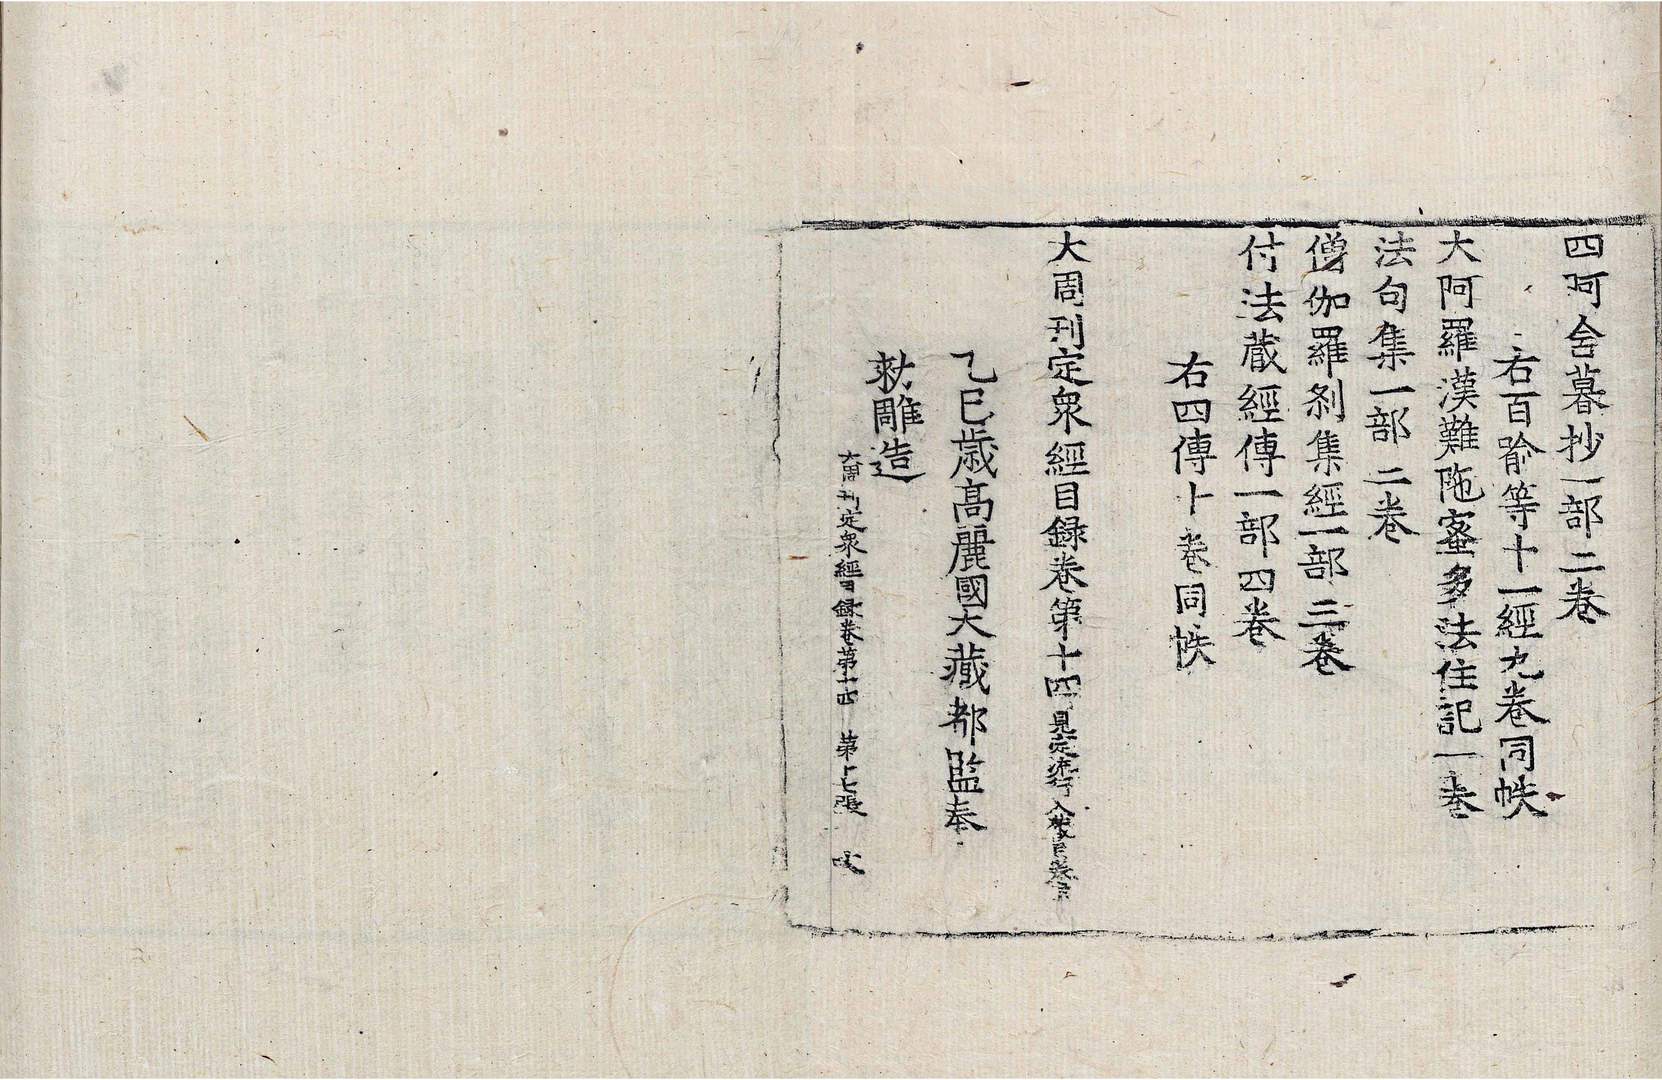 四阿含暮抄一部二卷
右百喻等十一經九卷同帙
大阿羅漢難陁蜜多法住記一卷
法句集一部二卷
僧伽羅剎集經一部三卷
付法藏經傳一部四卷
右四傳十卷同帙
大周刊定衆經目録卷第十四 見定流行入藏目卷
乙巳歲高麗國大藏都監奉
勑雕造
大周刊定衆經目録卷第十四 第十七張